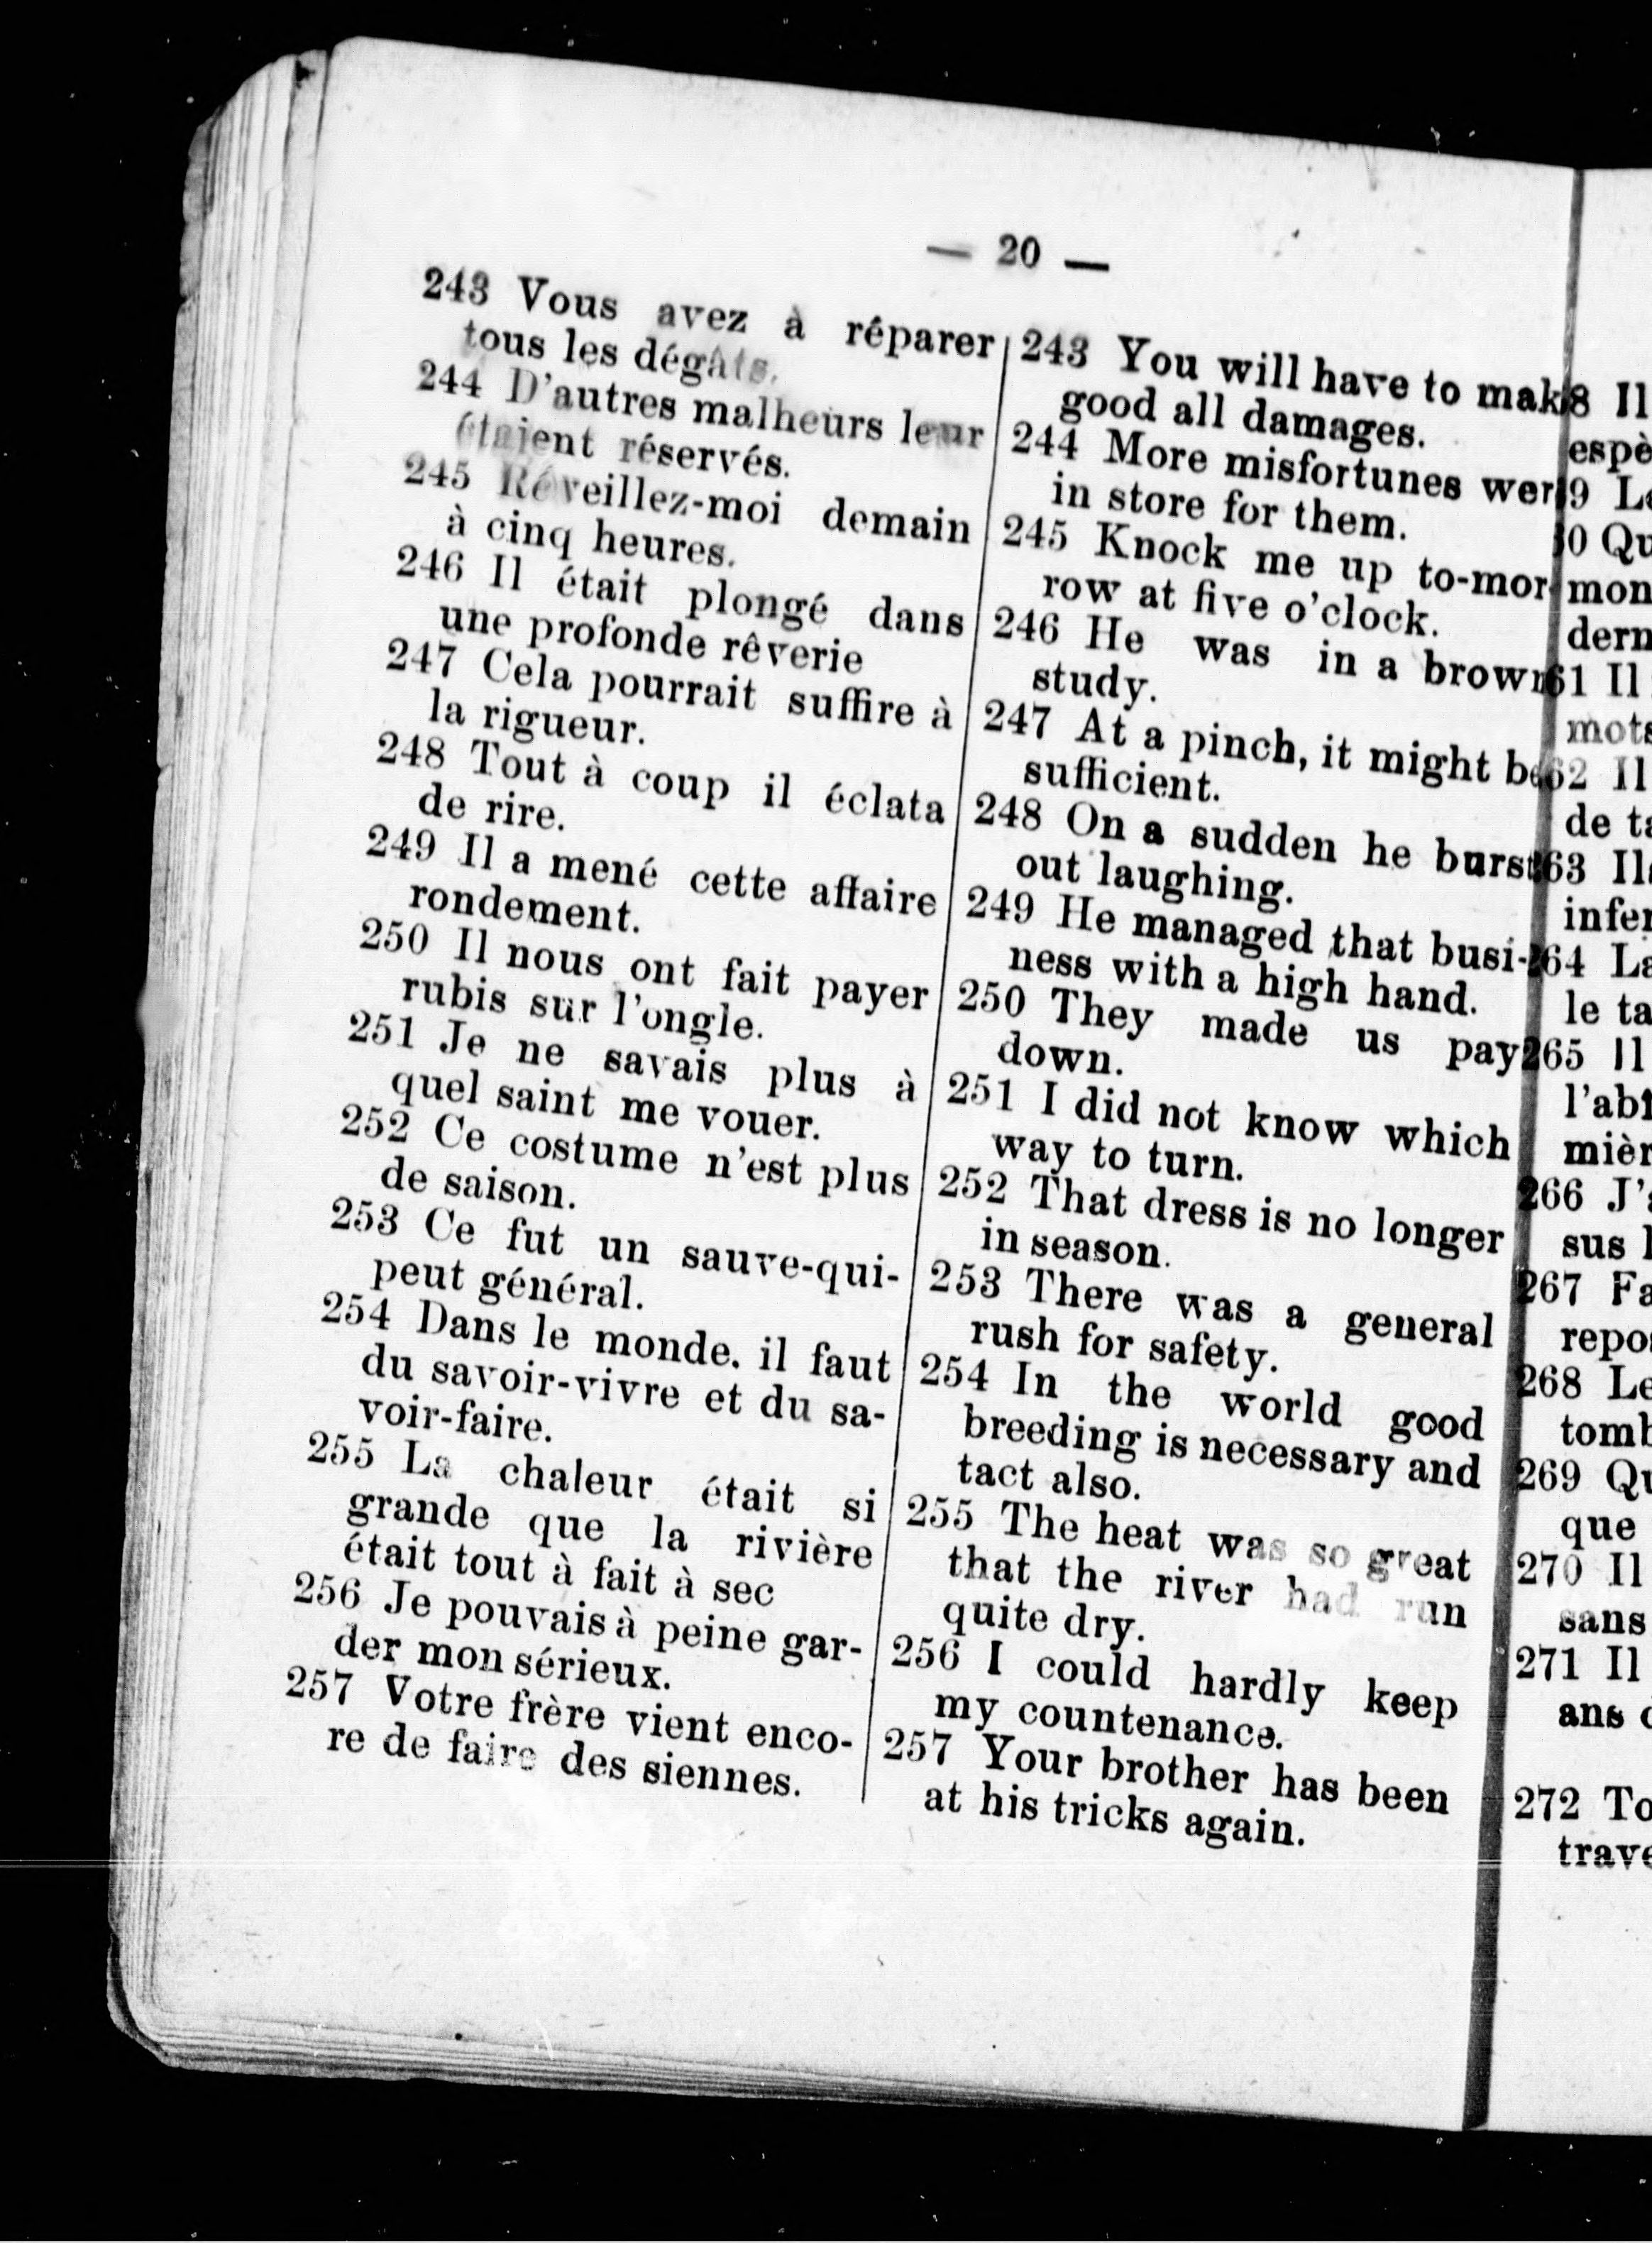 — 20 —
243 Vous avez à réparer
tous les dégâts.
244 D'autres malheurs leur
étaient réservés.
245 Réveillez-moi demain
à cinq heures.
246 Il était plongé dans
une profonde rêverie
247 Cela pourrait suffire à
la rigueur.
248 Tout à coup il éclata
de rire.
249 Il a mené cette affaire
rondement.
250 Il nous ont fait payer
rubis sur l'ongle.
251 Je ne savais plus à
quel saint me vouer.
252 Ce costume n'est plus
de saison.
253 Ce fut un sauve-qui-
peut général.
254 Dans le monde. il faut
du savoir-vivre et du sa-
voir-faire.
255 La chaleur était si
grande que la rivière
était tout à fait à sec
256 Je pouvais à peine gar-
der mon sérieux.
257 Votre frère vient enco-
re de faire des siennes.
243 You will have to mak
good all damages.
244 More misfortunes wer
in store for them.
245 Knock me up to-mor-
row at five o'clock.
246 He was in a brown
study.
247 At a pinch, it might be
sufficient.
248 On a sudden he burst
out laughing.
249 He managed that busi-
ness with a high hand.
250 They made us pay
down.
251 I did not know which
way to turn.
252 That dress is no longer
in season.
253 There was a general
rush for safety.
254 In the world good
breeding is necessary and
tact also.
255 The heat was so great
that the river had run
quite dry.
256 I could hardly keep
my countenance.
257 Your brother has been
at his tricks again.
8 Il
espè
9 Le
0 Qu
mon
dern
61 Il
mots
62 Il
de ta
63 Il
infer
264 La
le ta
265 Il
l'abî
mièr
266 J'
sus
267 Fa
repo
268 Le
tomb
269 Qu
que
270 Il
sans
271 Il
ans
272 To
trave